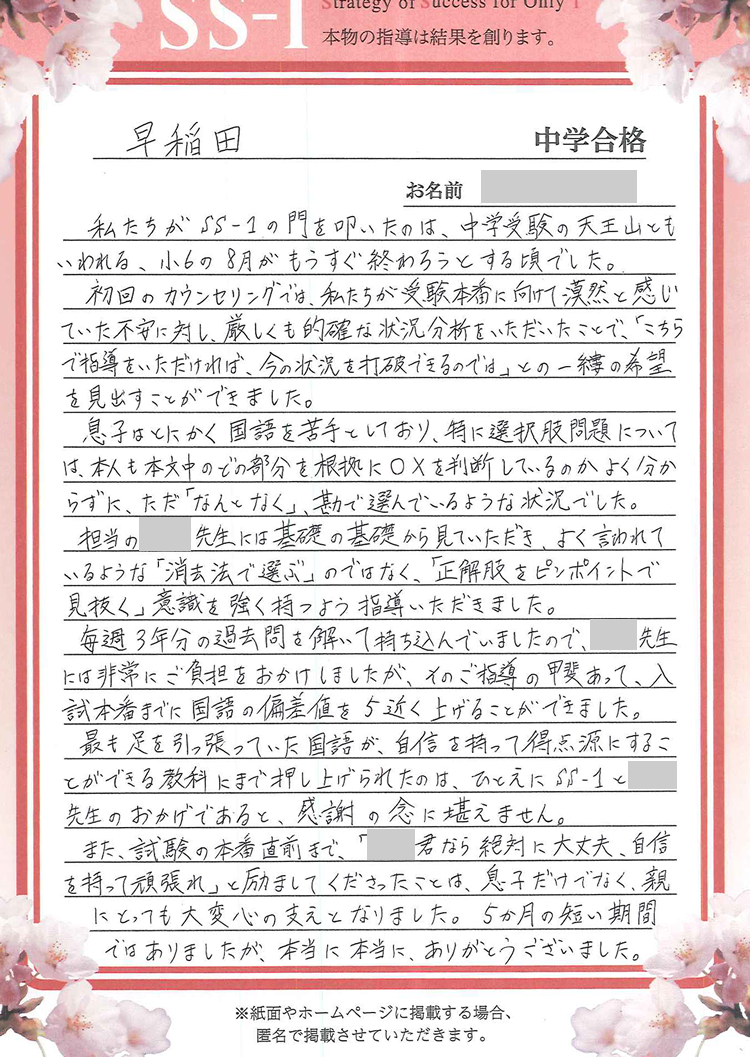 SS-1
Strategy of Success for Only 1
本物の指導は結果を創ります。
早稲田 中学合格
お名前
私たちがSS-1の門を叩いたのは、中学受験の天王山とも
いわれる、小6の8月がもうすぐ終わろうとする頃でした。
初回のカウンセリングでは、私たちが受験本番に向けて漠然と感じ
ていた不安に対し、厳しくも的確な状況分析をいただいたことで、「こちら
で指導をいただければ、今の状況を打破できるのでは」との一縷の希望
を見出すことができました。
息子はとにかく国語を苦手としており、特に選択肢問題について
は、本人も本文中のどの部分を根拠に○×を判断しているのかよく分か
らずに、ただ「なんとなく」、勘で選んでいるような状況でした。
担当の 先生には基礎の基礎から見ていただき、よく言われて
いるような「消去法で選ぶ」のではなく、「正解肢をピンポイントで
見抜く」意識を強く持つよう指導いただきました。
毎週3年分の過去問を解いて持ち込んでいましたので、 先生
には非常にご負担をおかけしましたが、そのご指導の甲斐あって、入
試本番までに国語の偏差値を5近く上げることができました。
最も足を引っ張っていた国語が、自信を持って得点源にするこ
とができる教科にまで押し上げられたのは、ひとえにSS-1と
先生のおかげであると、感謝の念に堪えません。
また、試験の本番直前まで、「 君なら絶対に大丈夫、自信
を持って頑張れ」と励ましてくださったことは、息子だけでなく、親
にとっても大変心の支えとなりました。5か月の短い期間
ではありましたが、本当に本当に、ありがとうございました。
※紙面やホームページに掲載する場合、
匿名で掲載させていただきます。